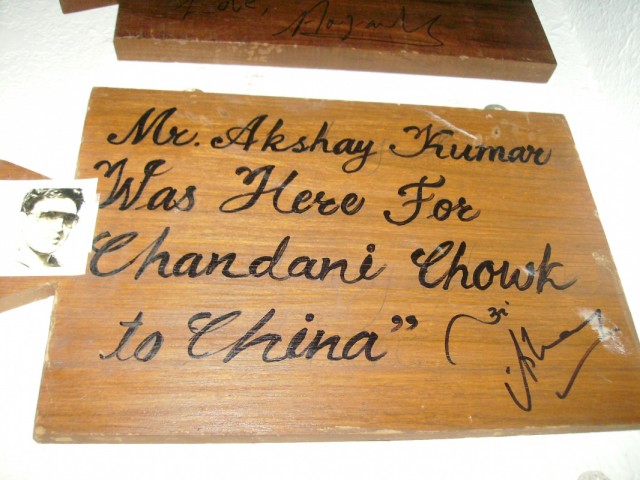 Love,
Mr. Akshay Kumar
Was Here For
Chandani Chowk
to China”